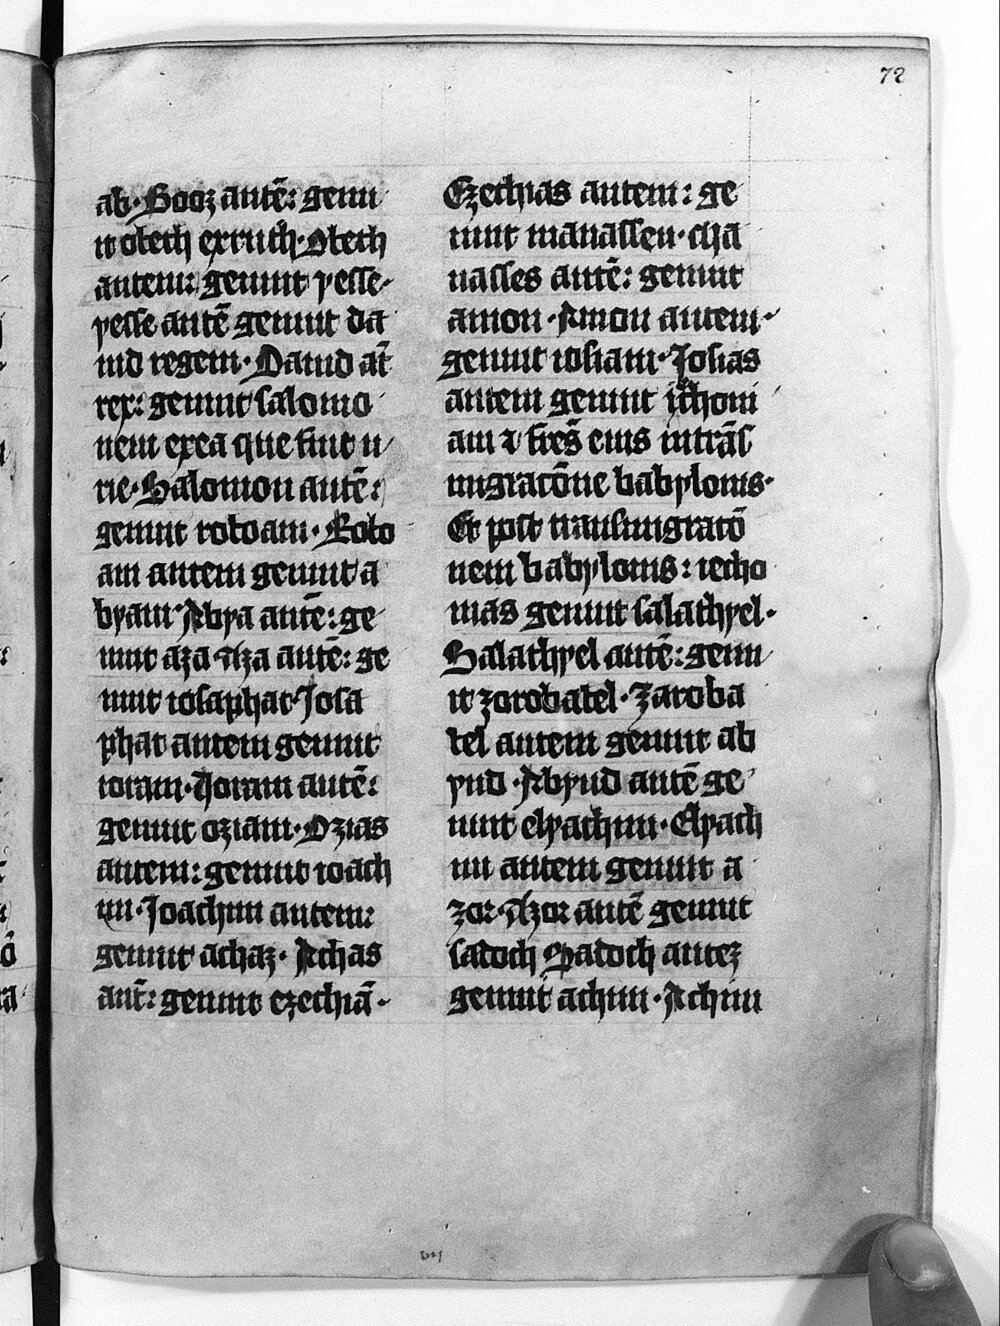 72
ab· Booz autē: genu
it obeth ex ruth· Obeth
autem: genuit yesse·
yesse autē genuit da
uid regem· Dauid aūt
rex: genuit salomo
nem ex ea que fuit u
rie· Salomon autē:
genuit roboam· Robo
am autem genuit a
byam· Abya autē: ge
nuit aza Aza autē: ge
nuit iosaphat· Josa
phat autem genuit
ioram· Joram autē:
genuit oziam· Ozias
autem: genuit ioach
im· Joachim autem:
genuit achaz· Achas
aut̄: genuit ezechiā·
Ezechias autem: ge
nuit manassen· Ma
nasses autē: genuit
amon· Amon autem·
genuit iosiam· Josias
autem genuit jechoni
am ⁊ fr̄es eius in trās
migracōne babylonis·
Et post transmigratō
nem babylonis: iecho
nias genuit salathyel·
Salathyel autē: genu
it zorobabel· Zaroba
bel autem genuit ab
yud· Abyud autē ge
nuit elyachim· Elyach
im autem genuit a
zor· Azor autē genuit
sadoch Sadoch autez
genuit achim· Achim